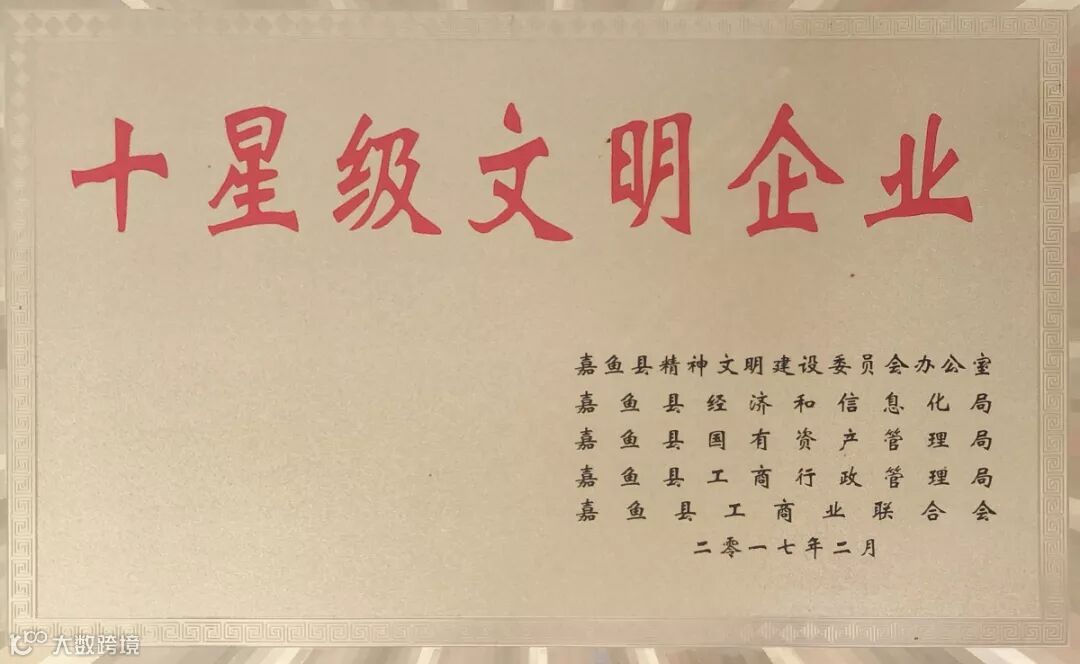 十星级文明企业
嘉鱼县精神文明建设委员会办公室
嘉鱼县经济和信息化局
嘉鱼县国有资产管理局
嘉鱼县工商行政管理局
嘉鱼县工商业联合会
二零一七年二月
大数跨境